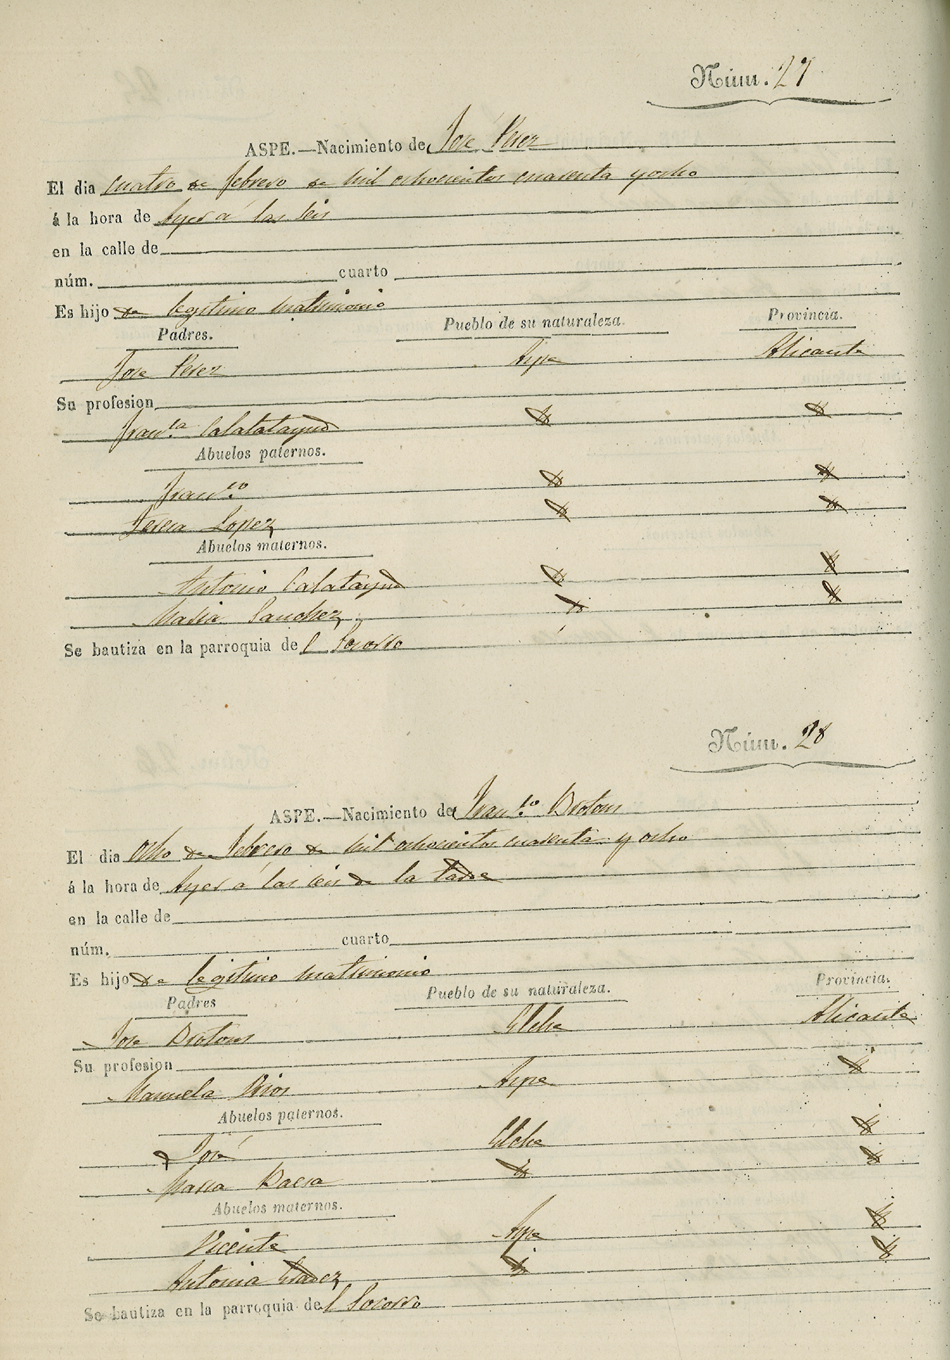 Núm. 27
ASPE.—Nacimiento de José Perez
El dia cuatro de febrero de mil ochocientos cuarenta y ocho
á la hora de Ayer á las seis
en la calle de
núm. cuarto
Es hijo de legitimo matrimonio
Padres. Pueblo de su naturaleza. Provincia.
Jose Perez Aspe Alicante
Su profesion
Franca Calatatayud
Abuelos paternos.
Franco
Teresa Lopez
Abuelos maternos.
Antonio Calatayud
Maria Sanchez
Se bautiza en la parroquia del Socorro
Núm. 28
ASPE.—Nacimiento de Franco Brotons
El dia Ocho de Febrero de mil ochocientos cuarenta y ocho
á la hora de Ayer á las seis de la tarde
en la calle de
núm. cuarto
Es hijo de legitimo matrimonio
Padres Pueblo de su naturaleza. Provincia.
Jose Brotons Elche Alicante
Su profesion
Manuela Rios Aspe
Abuelos paternos.
José Elche
Maria
Abuelos maternos.
Vicente Aspe
Antonia
Se bautiza en la parroquia del Socorro